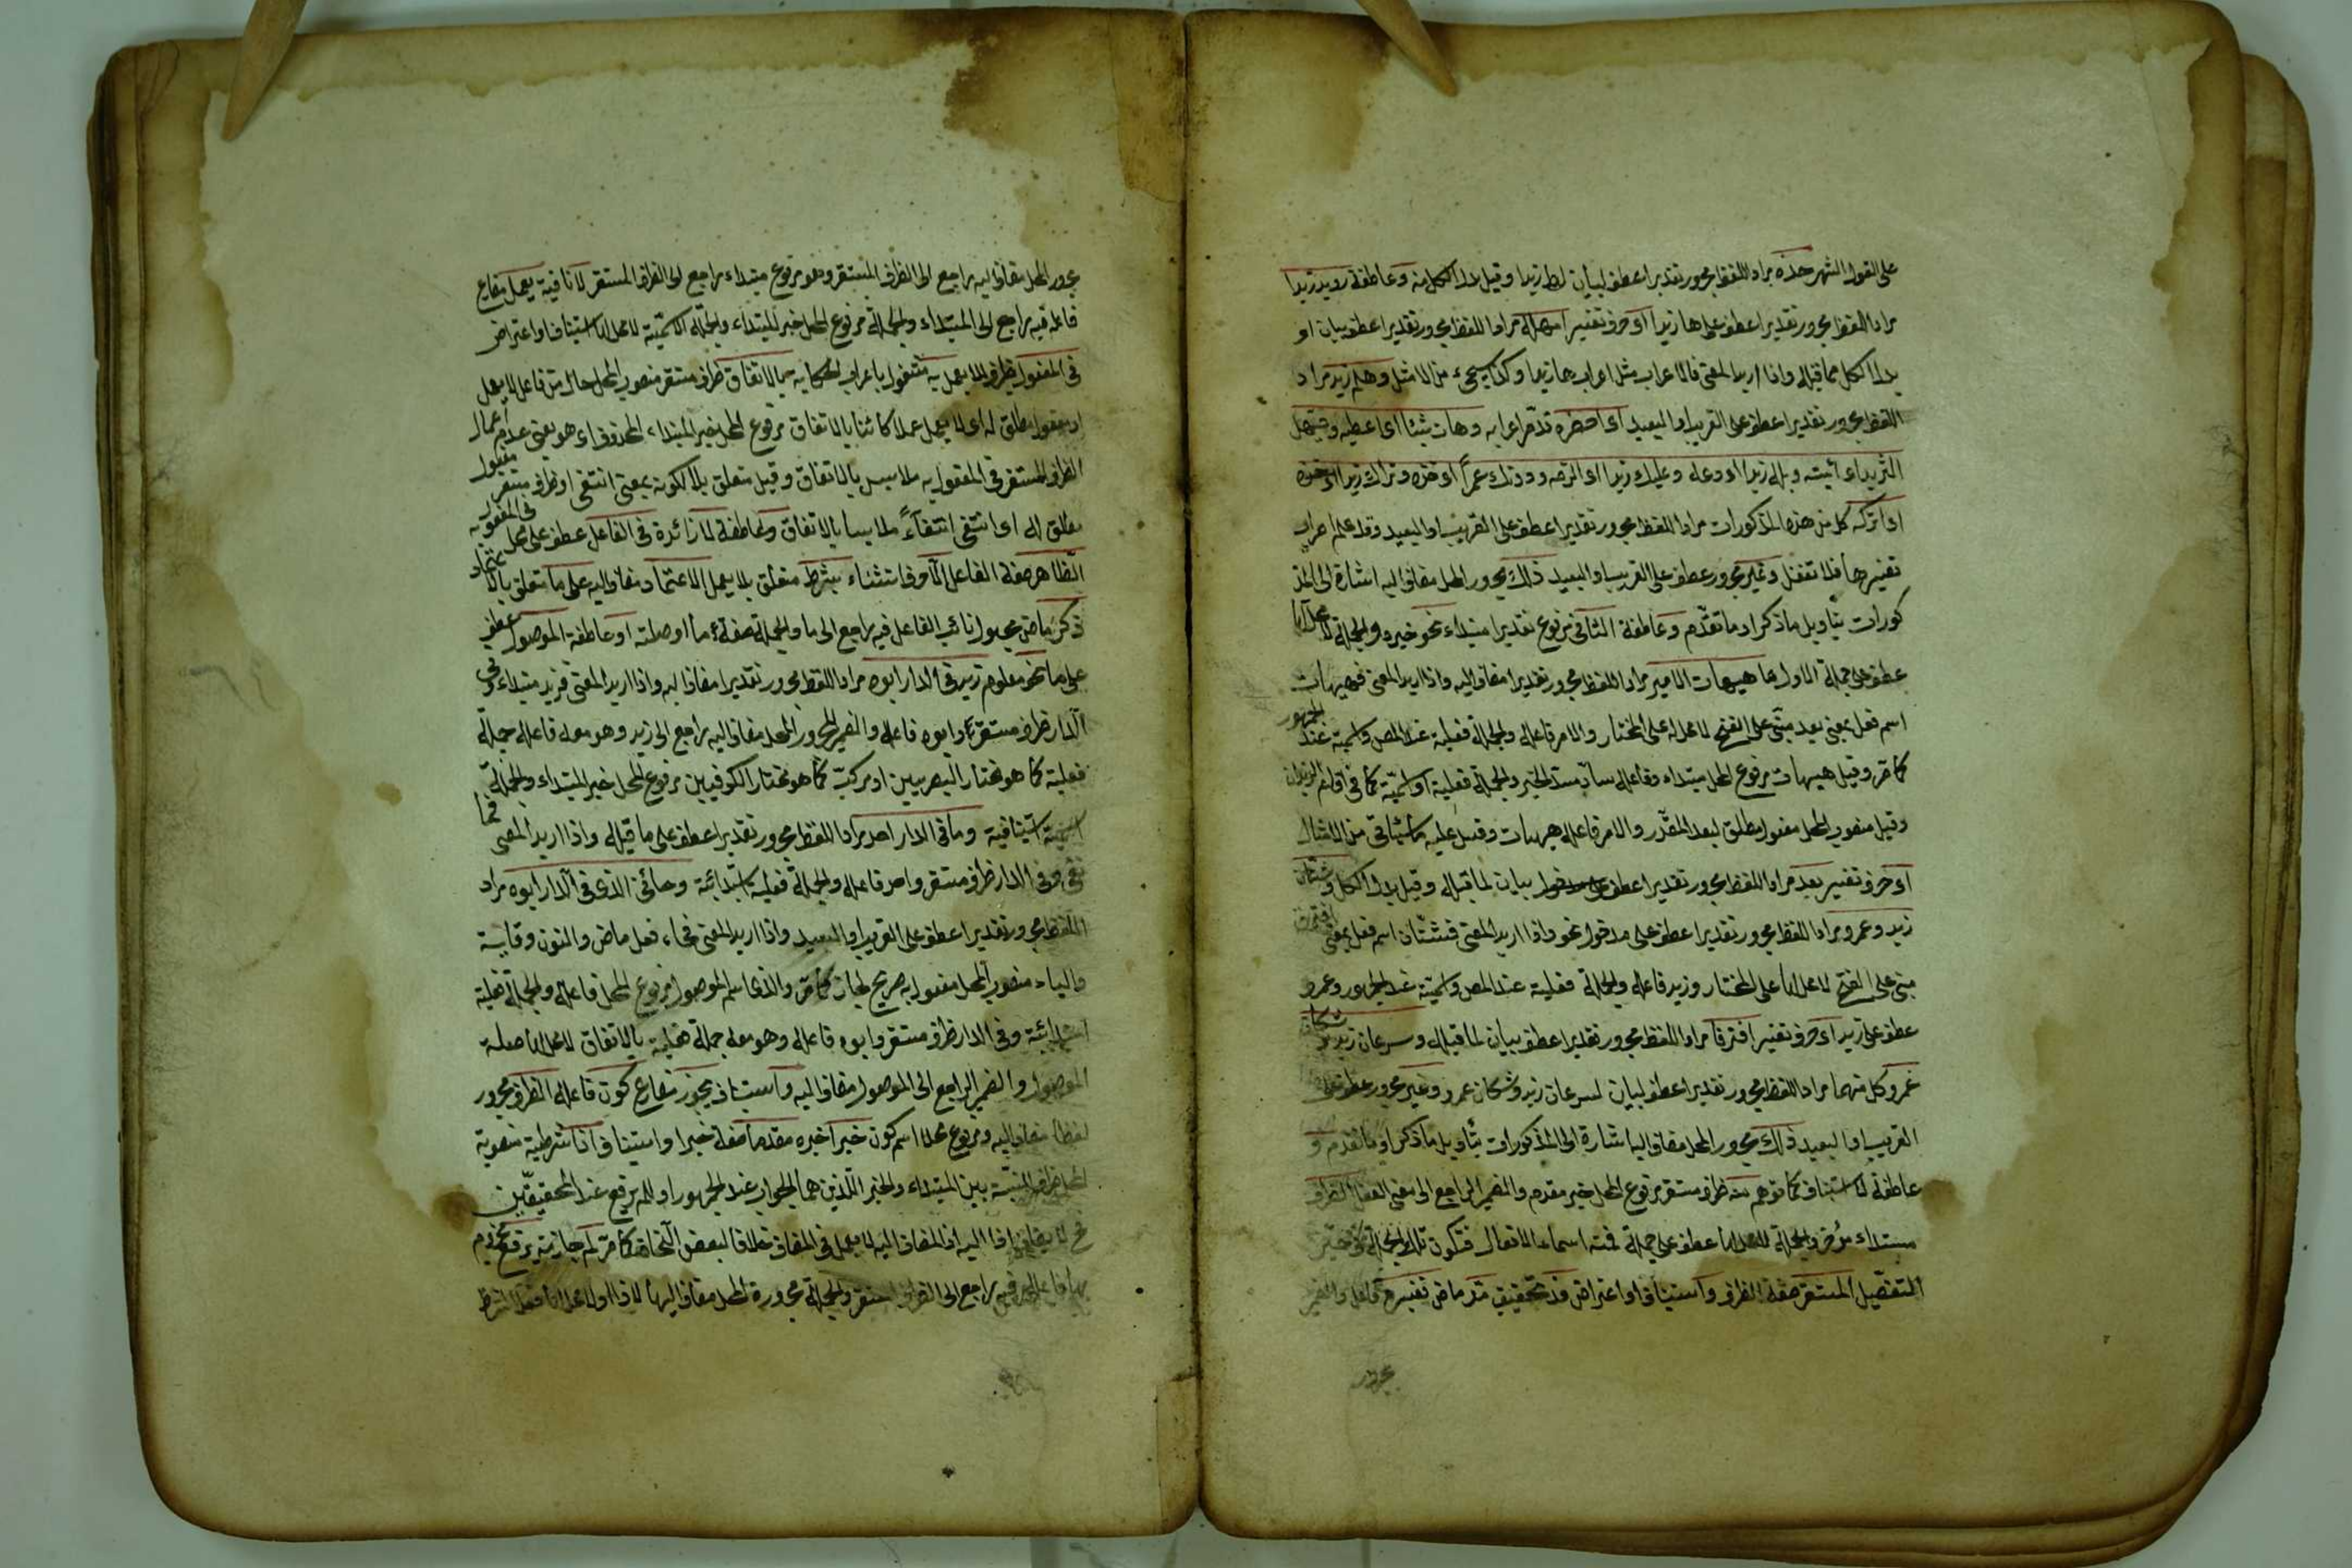 على القول الشهر خذه مراد اللفظ مجرور تقديرا عطف لبيان لها زيدا وقيل بدل الكل منه وعاطفة رويد زيدا
مراد اللفظ مجرور تقديرا عطف على ها زيدا او حرف تفسير امهله مراد اللفظ مجرور تقديرا عطف بيان او
بدل الكل مما قبله واذا اريد المعنى فالاعراب مثل اعراب ها زيدا وكذا يجيء من الامثل وهلم زيد مراد
اللفظ مجرور تقديرا عطف على القريب او البعيد اى احضره قد مر اعرابه وهات شيئا اى اعطيه وحيهل
الثريد اى ائيته وبله زيدا اى دعه وعليك زيدا اى الزمه ودونك عمرا اى خذه وتراك زيدا اى
اى اتركه كل من هذه المذكورات مراد اللفظ مجرور تقديرا عطف على القريب او البعيد وقد علم اعراب
تفسيرها فلا تغفل وغير مجرور عطف على القريب او البعيد ذلك مجرور المحل مضاف اليه اشارة الى المذ
كورات بتأويل ما ذكر او ما تقدم وعاطفة الثانى مرفوع تقديرا مبتداء نحو خبره والجملة لا محل لها
عطف على جملة الاول ها هيهات الامر مراد اللفظ مجرور تقديرا مضاف اليه واذا اريد المعنى فهيهات
اسم فعل بمعنى بعد مبنى على الفتح لا محل له على المختار والامر فاعله والجملة فعلية عند المص واسمية عند الجمهور
كما مر وقيل هيهات مرفوع المحل مبتداء وفاعله ساد مسد الخبر والجملة فعلية او اسمية كما فى اقائم الزيدان
وقيل منصوب المحل مفعول مطلق لبعد المقدر والامر فاعله هيهات وقس عليه ما سيأتى من المثال
اى حرف تفسير بعد مراد اللفظ مجرور تقديرا عطف بيان لما قبله وقيل بدل الكل وشتان
زيد وعمرو مراد اللفظ مجرور تقديرا عطف على مدخول نحو واذا اريد المعنى فشتان اسم فعل بمعنى افترق
مبنى على الفتح لا محل لها على المختار وزيد فاعله والجملة فعلية عند المص واسمية عند الجمهور وعمرو
عطف على زيد اى حرف تفسير افترقا مراد اللفظ مجرور تقديرا عطف بيان لما قبله وسرعان زيد وشكان
عمرو كل منهما مراد اللفظ مجرور تقديرا عطف لبيان لسرعان زيد وشكان عمرو وغير مجرور عطف على
القريب او البعيد ذلك مجرور المحل مضاف اليه اشارة الى المذكورات بتأويل ما ذكر او ما تقدم و
عاطفة لا استيناف كما توهم منه ظرف مستقر مرفوع المحل خبر مقدم والضمير الراجع الى معنى الفعل الظرف
مبتداء مؤخر والجملة لا محل لها عطف على جملة فمنه اسماء الافعال فتكون تلك الجملة
المستقر صفة الظرف واستيناف او اعتراض قد تحقيق مر ماض تفسيره فاعل والضمير
مجرور
مجرور المحل مضاف اليه راجع الى الظرف المستقر وهو مرفوع مبتداء راجع الى الظرف المستقر لا نافية يعمل مضارع
فاعله فيه راجع الى المبتداء والجملة مرفوع المحل خبر للمبتداء والجملة الاسمية لا محل لها استيناف او اعتراض
فى المفعول ظرف لا يعمل به مشغول باعراب الحكاية بالاتفاق ظرف مستقر منصوب المحل حال من فاعل لا يعمل
او مفعول مطلق له اى لا يعمل عملا كائنا بالاتفاق مرفوع المحل خبر المبتداء المحذوف اى هو يعنى عدم اعمال
الظرف المستقر فى المفعول به ملابس بالاتفاق وقيل متعلق بلا لكونه بمعنى انتفى او ظرف مستقر مفعول
مطلق له اى انتفى انتفاءً ملابسا بالاتفاق وعاطفة لا زائدة فى الفاعل عطف على محل فى المفعول به
الظاهر صفة الفاعل الا حرف استثناء بشرط متعلق بلا يعمل الاعتماد مضاف اليه على ما متعلق بالاعتماد
ذكر ماض مجهول نائب الفاعل فيه راجع الى ما والجملة صفة ما او صلته او عاطفة الموصول عطف
على ما نحو معلوم زيد فى الدار ابوه مراد اللفظ مجرور تقديرا مضاف اليه واذا اريد المعنى فزيد مبتداء وفى
الدار ظرف مستقر وابوه فاعله والضمير المجرور المحل مضاف اليه راجع الى زيد وهو مع فاعله جملة
فعلية كما هو مختار البصريين او مركب كما هو مختار الكوفيين مرفوع المحل خبر المبتداء والجملة
اسمية استينافية وما فى الدار احد مراد اللفظ مجرور تقديرا عطف على ما قبله واذا اريد المعنى فما
نفى وفى الدار ظرف مستقر واحد فاعله والجملة فعلية ابتدائية وجائنى الذى فى الدار ابوه مراد
اللفظ مجرور تقديرا عطف على القريب او البعيد واذا اريد المعنى فجاء فعل ماض والنون وقاية
والياء منصوب المحل مفعول به صريح لجاء كما مر والذى اسم الموصول مرفوع المحل فاعله والجملة فعلية
ابتدائية وفى الدار ظرف مستقر وابوه فاعله وهو معه جملة فعلية بالاتفاق لا محل لها صلة
الموصول والضمير الراجع الى الموصول مضاف اليه واستيناف يجوز مضارع كون فاعله الظرف مجرور
لفظا مضاف اليه ومرفوع محلا اسم كون خبرا خبره مقدما صفة خبرا واستيناف اذا شرطية منصوبة
المحل ظرف للنسبة بين المبتداء والخبر اللذين هما الجواب عند الجمهور او لم يرفع عند المحققين
اذا اليه اذ المضاف اليه لا يعمل فى المضاف خلافا لبعض النحاة كما مر لم جازمة يرفع مجزوم
بها فاعله فيه راجع الى الظرف المستقر والجملة مجرورة المحل مضاف اليها لاذا او لا محل لها فعل الشرط